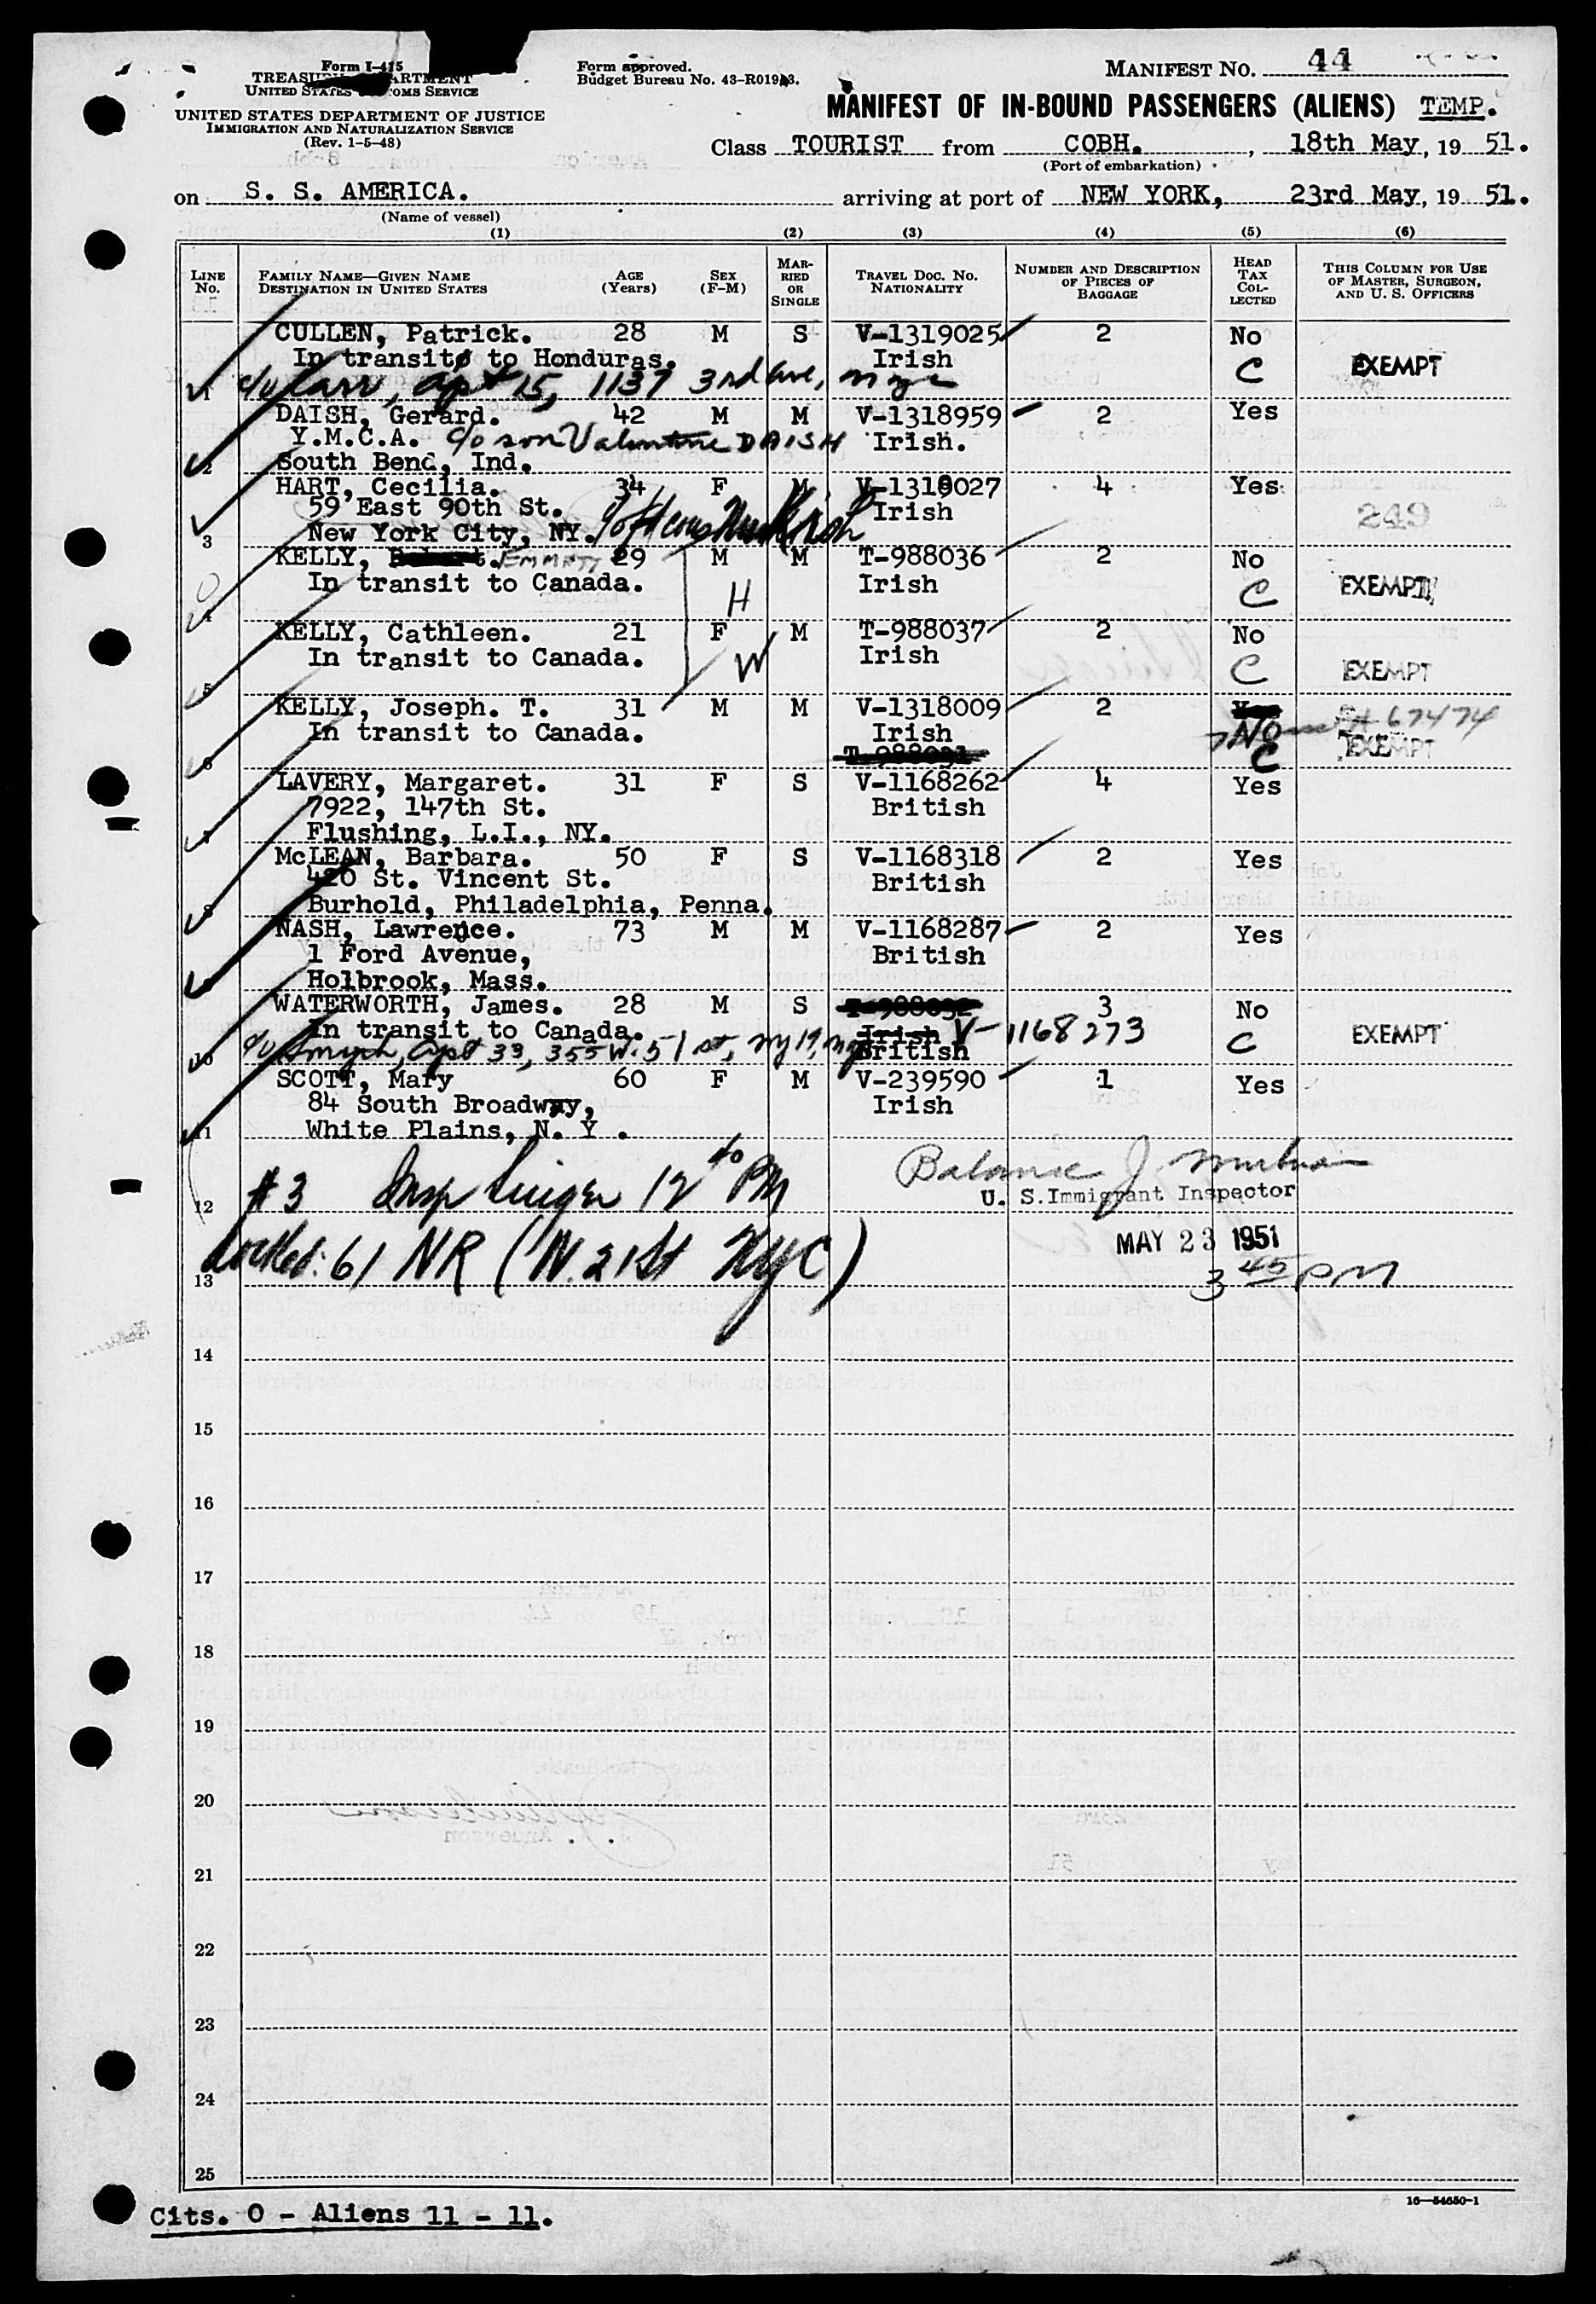 Form I-415
TREASURY DEPARTMENT
UNITED STATES CUSTOMS SERVICE
UNITED STATES DEPARTMENT OF JUSTICE
IMMIGRATION AND NATURALIZATION SERVICE
(Rev. 1-5-48)
Form approved.
Budget Bureau No. 43-R019
MANIFEST NO. 44
MANIFEST OF IN-BOUND PASSENGERS (ALIENS) TEMP.
Class TOURIST from COBH. , 18th May, 19 51.
(Port of embarkation)
on S. S. AMERICA. arriving at port of NEW YORK, 23rd May, 19 51.
(Name of vessel)
(1) (2) (3) (4) (5) (6)
LINE NO. FAMILY NAME—GIVEN NAME DESTINATION IN UNITED STATES AGE (Years) SEX (F-M) MARRIED OR SINGLE TRAVEL DOC. NO. NATIONALITY NUMBER AND DESCRIPTION OF PIECES OF BAGGAGE HEAD TAX COLLECTED THIS COLUMN FOR USE OF MASTER, SURGEON, AND U. S. OFFICERS
CULLEN, Patrick. 28 M S V-1319025 2 No
In transit to Honduras. Irish C EXEMPT
1 c/o Carr, apt 15, 1137 3rd ave, nyc
DAISH, Gerard. 42 M M V-1318959 2 Yes
Y.M.C.A. c/o son Valentine DAISH Irish.
2 South Bend, Ind.
HART, Cecilia. 34 F M V-1319027 4 Yes
59 East 90th St. Irish 249
3 New York City, NY. c/o
KELLY, EMMETT 29 M M T-988036 2 No
In transit to Canada. H Irish C EXEMPT
4
KELLY, Cathleen. 21 F M T-988037 2 No
In transit to Canada. W Irish C EXEMPT
5
KELLY, Joseph. T. 31 M M V-1318009 2 Yes
In transit to Canada. Irish No 67474
6 T-988031 C EXEMPT
LAVERY, Margaret. 31 F S V-1168262 4 Yes
7922, 147th St. British
7 Flushing, L.I., NY.
McLEAN, Barbara. 50 F S V-1168318 2 Yes
420 St. Vincent St. British
8 Burhold, Philadelphia, Penna.
NASH, Lawrence. 73 M M V-1168287 2 Yes
1 Ford Avenue, British
9 Holbrook, Mass.
WATERWORTH, James. 28 M S T-988032 3 No
In transit to Canada. Irish V-1168273 C EXEMPT
10 c/o Smyth, apt 33, 355 W. 51 st, ny 19, ny British
SCOTT, Mary 60 F M V-239590 1 Yes
84 South Broadway, Irish
11 White Plains, N. Y .
Balance J.
12 #3 Insp 12 40 PM U. S. Immigrant Inspector
MAY 23 1951
13 61 NR (W. 21 St NYC) 3 45 PM
14
15
16
17
18
19
20
21
22
23
24
25
16—54650-1
Cits. 0 - Aliens 11 - 11.